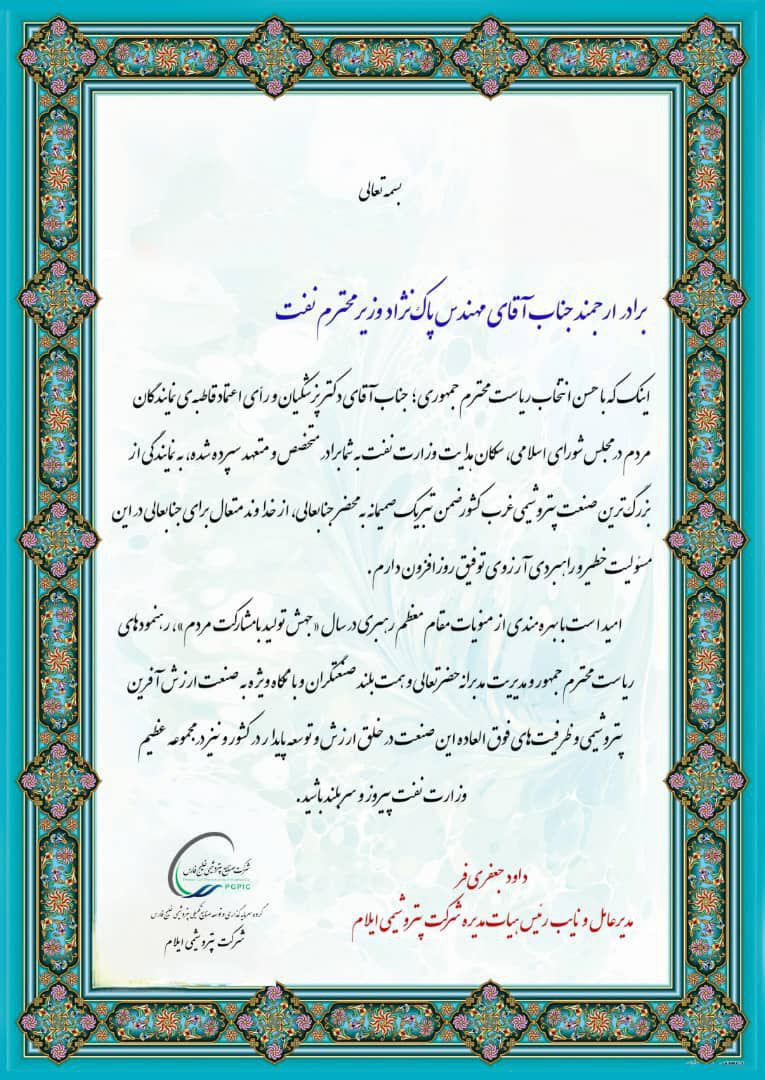 بسمه تعالی
برادر ارجمند جناب آقای مهندس پاک نژاد وزیر محترم نفت
اینک که با حسن انتخاب ریاست محترم جمهوری؛ جناب آقای دکتر پزشکیان و رأی اعتماد قاطبه‌ی نمایندگان
مردم در مجلس شورای اسلامی، سکان هدایت وزارت نفت به شما برادر متخصص و متعهد سپرده شده، به نمایندگی از
بزرگ‌ترین صنعت پتروشیمی غرب کشور ضمن تبریک صمیمانه به محضر جنابعالی، از خداوند متعال برای جنابعالی در این
مسؤلیت خطیر و راهبردی آرزوی توفیق روزافزون دارم.
امید است با بهره مندی از منویات مقام معظم رهبری در سال «جهش تولید با مشارکت مردم»، رهنمودهای
ریاست محترم جمهور و مدیریت مدبرانه حضرتعالی و همت بلند صنعتگران و با نگاه ویژه به صنعت ارزش آفرین
پتروشیمی و ظرفیت‌های فوق العاده این صنعت در خلق ارزش و توسعه پایدار در کشور و نیز در مجموعه عظیم
وزارت نفت پیروز و سربلند باشید.
داود جعفری فر
مدیرعامل و نایب رئیس هیات مدیره شرکت پتروشیمی ایلام
شرکت صنایع پتروشیمی خلیج فارس
PGPIC
گروه سرمایه گذاری و توسعه صنایع تکمیلی پتروشیمی خلیج فارس
شرکت پتروشیمی ایلام